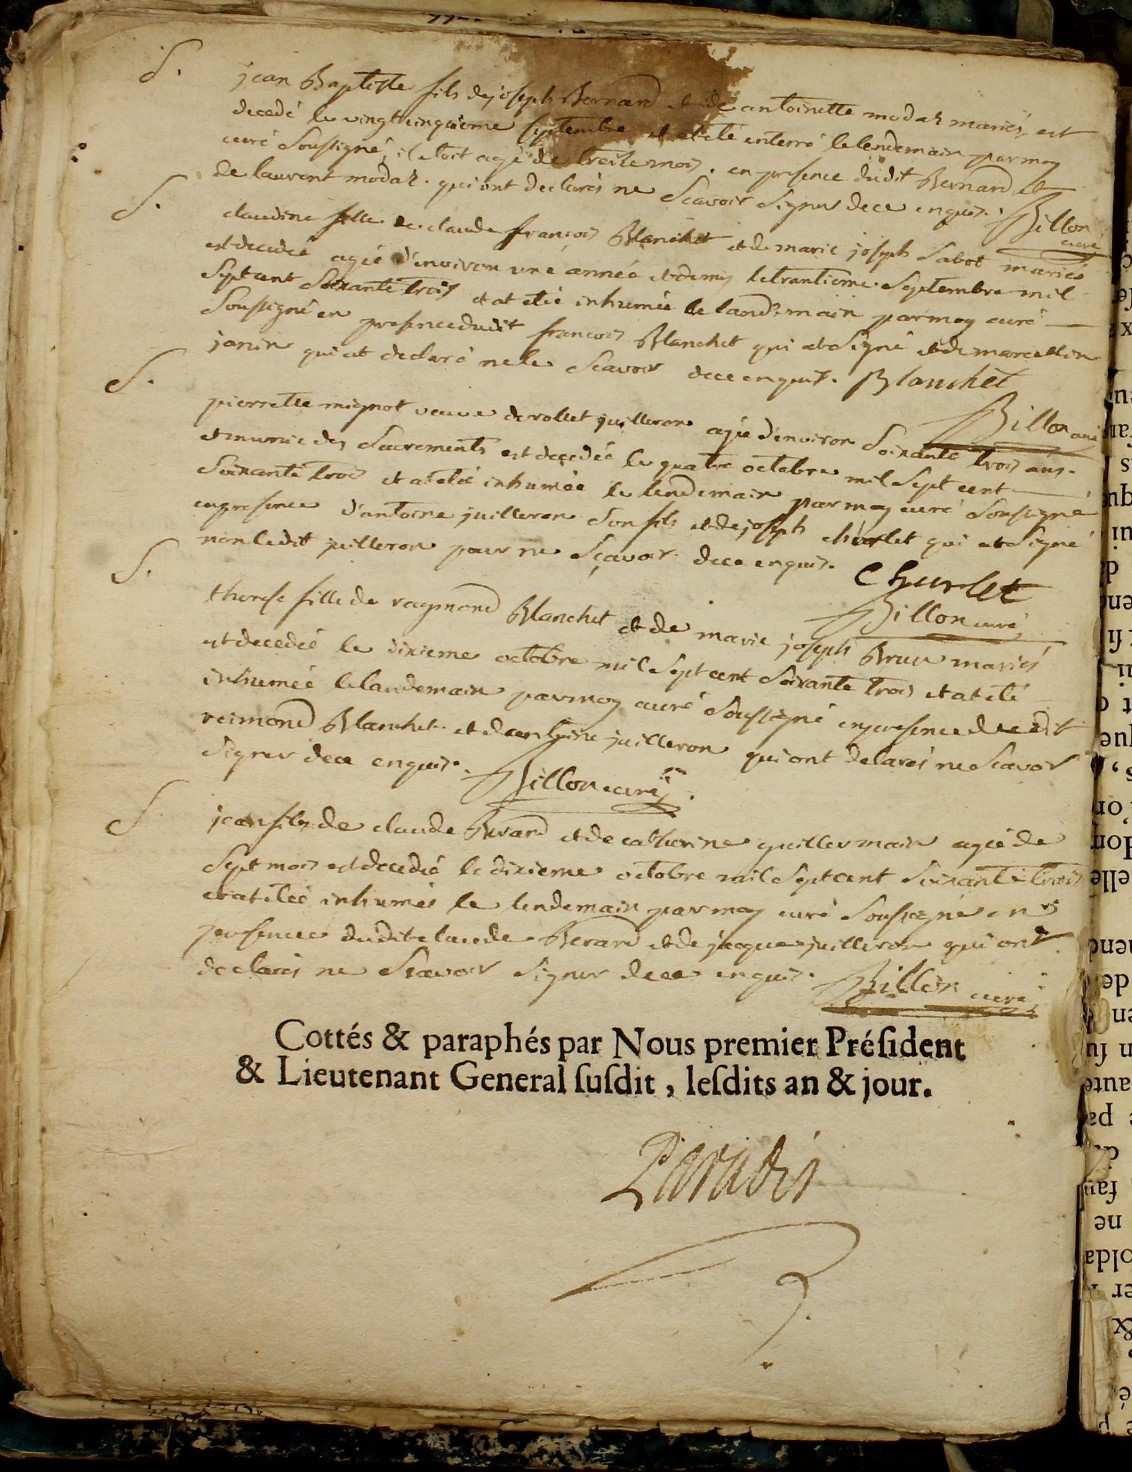 S. jean Baptiste fils de joseph Bernard et de antoinette modas mariés, est
decedé le vingtcinquieme septembre et atété enterré le lendemain par moy
curé soussigné, il etoit agé de treite mois. en presence dudit Bernard et
de laurent modas. qui ont declarés ne scavoir signer de ce enquis. Billon
curé
S. claudine fille de claude françois Blanchet et de marie joseph Sabot mariés
est decedée agée d'environ une année et demy le trantieme septembre mil
sept cent soixante trois et at etée inhumée le landemain par moy curé
soussigné en presence dudit francois Blanchet qui at signé et de marcellin
janin qui at declaré ne le scavoir de ce enquis. Blanchet
Billon curé
S. pierrette mignot veuve de rollet juilleron agée d'environ soixante trois ans.
et munie des sacrements est decedée le quatre octobre mil sept cent
soixante trois et at etée inhumée le lendemain par moy curé soussigné
en presence d'antoine juilleron son fils et de joseph churlet qui at signé
non ledit juilleron pour ne sçavoir de ce enquis. Churlet
Billon curé
S. therese fille de raymond Blanchet et de marie joseph Brun mariés
est decedée le dixieme octobre mil sept cent soixante trois et at eté
inhumée le landemain par moy curé soussigné en presence du dit
reimond Blanchet et d'antoine juilleron qui ont delarés ne scavoir
signer de ce enquis. Billon curé
S. jean fils de claude Berard et de catherine guillermain agé de
sept mois est decedé le dixieme octobre mil sept cent soixante trois
et at etée inhumés le lendemain par moy curé soussigné en
presence dudit claude Berard et de jacque juilleron qui ont
declarés ne scavoir signer de ce enquis. Billon curé
Cottés & paraphés par Nous premier Préſident
& Lieutenant General ſuſdit, leſdits an & jour.
Paradis